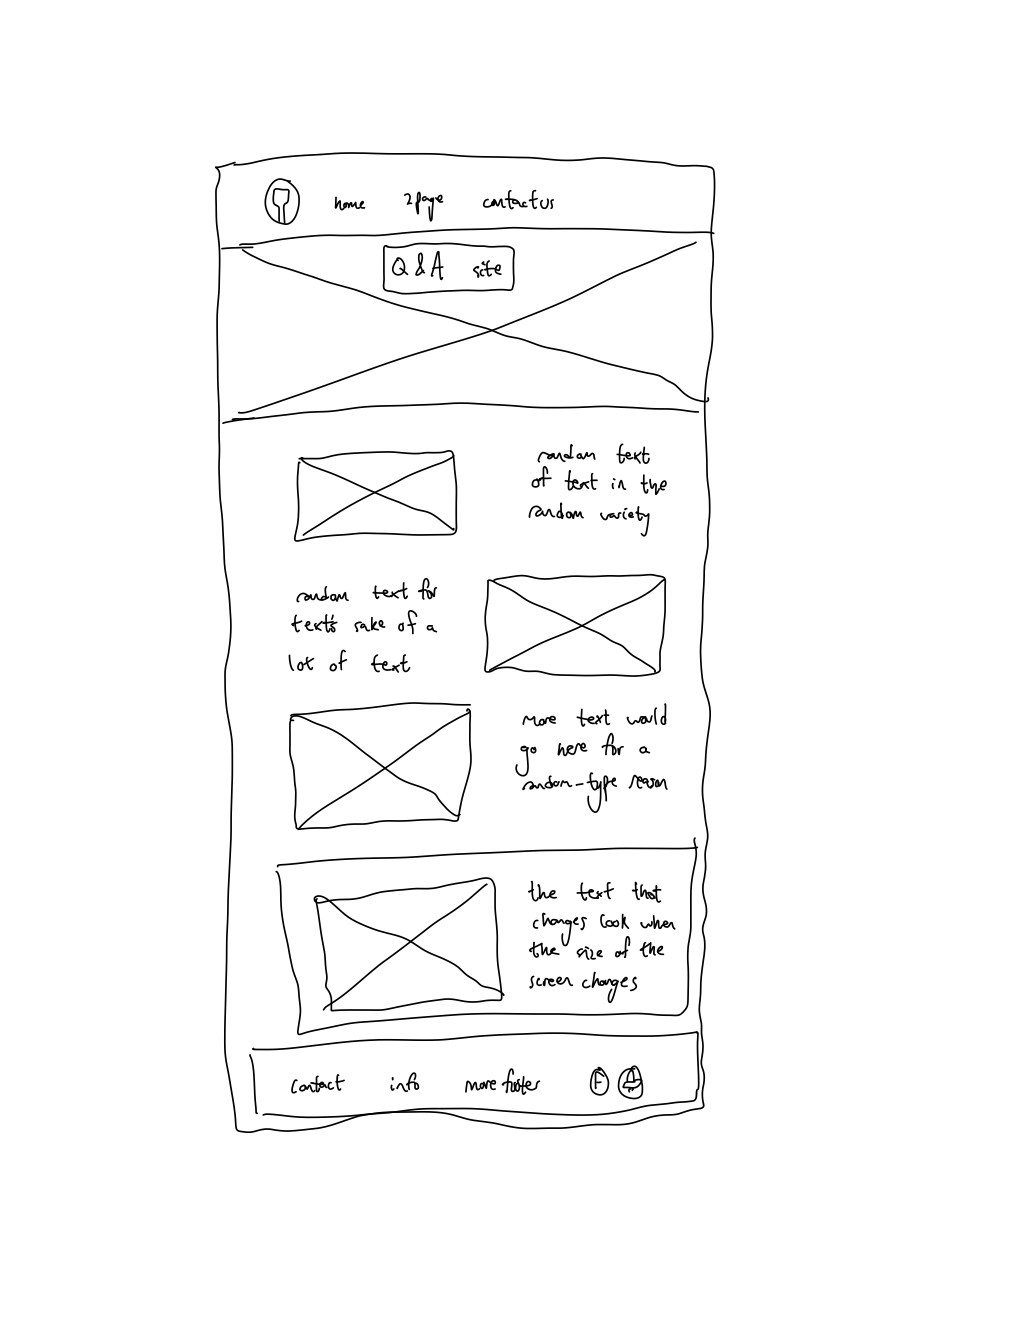 home 2page contact us
Q & A site
random text
of text in the
random variety
random text for
text's sake of a
lot of text
more text would
go here for a
random-type reason
the text that
changes look when
the size of the
screen changes
contact info more footer F